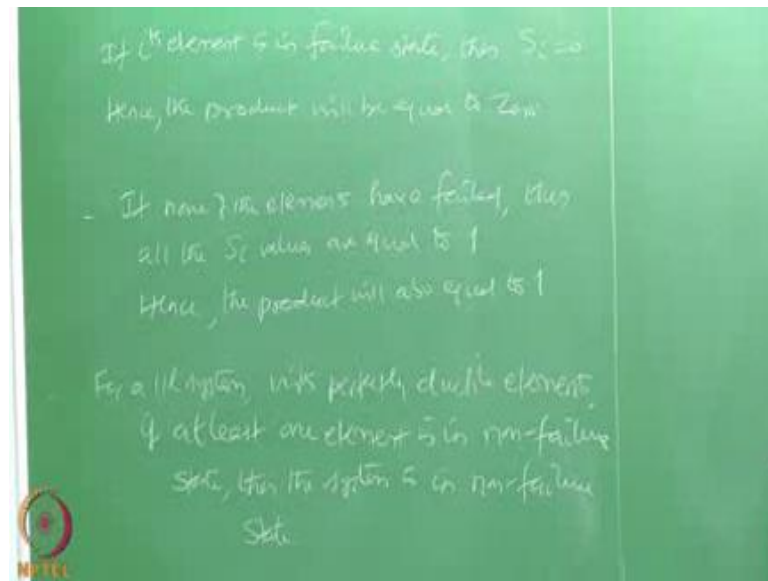 If iᵗʰ element is in failure state, then Si = 0
Hence, the product will be equal to Zero
- If none of the elements have failed, then
all the Si values are equal to 1
Hence, the product will also equal to 1
For a 11el system, with perfectly ductile elements,
if atleast one element is in non-failure
State, then the system is in non-failure
State
NPTEL